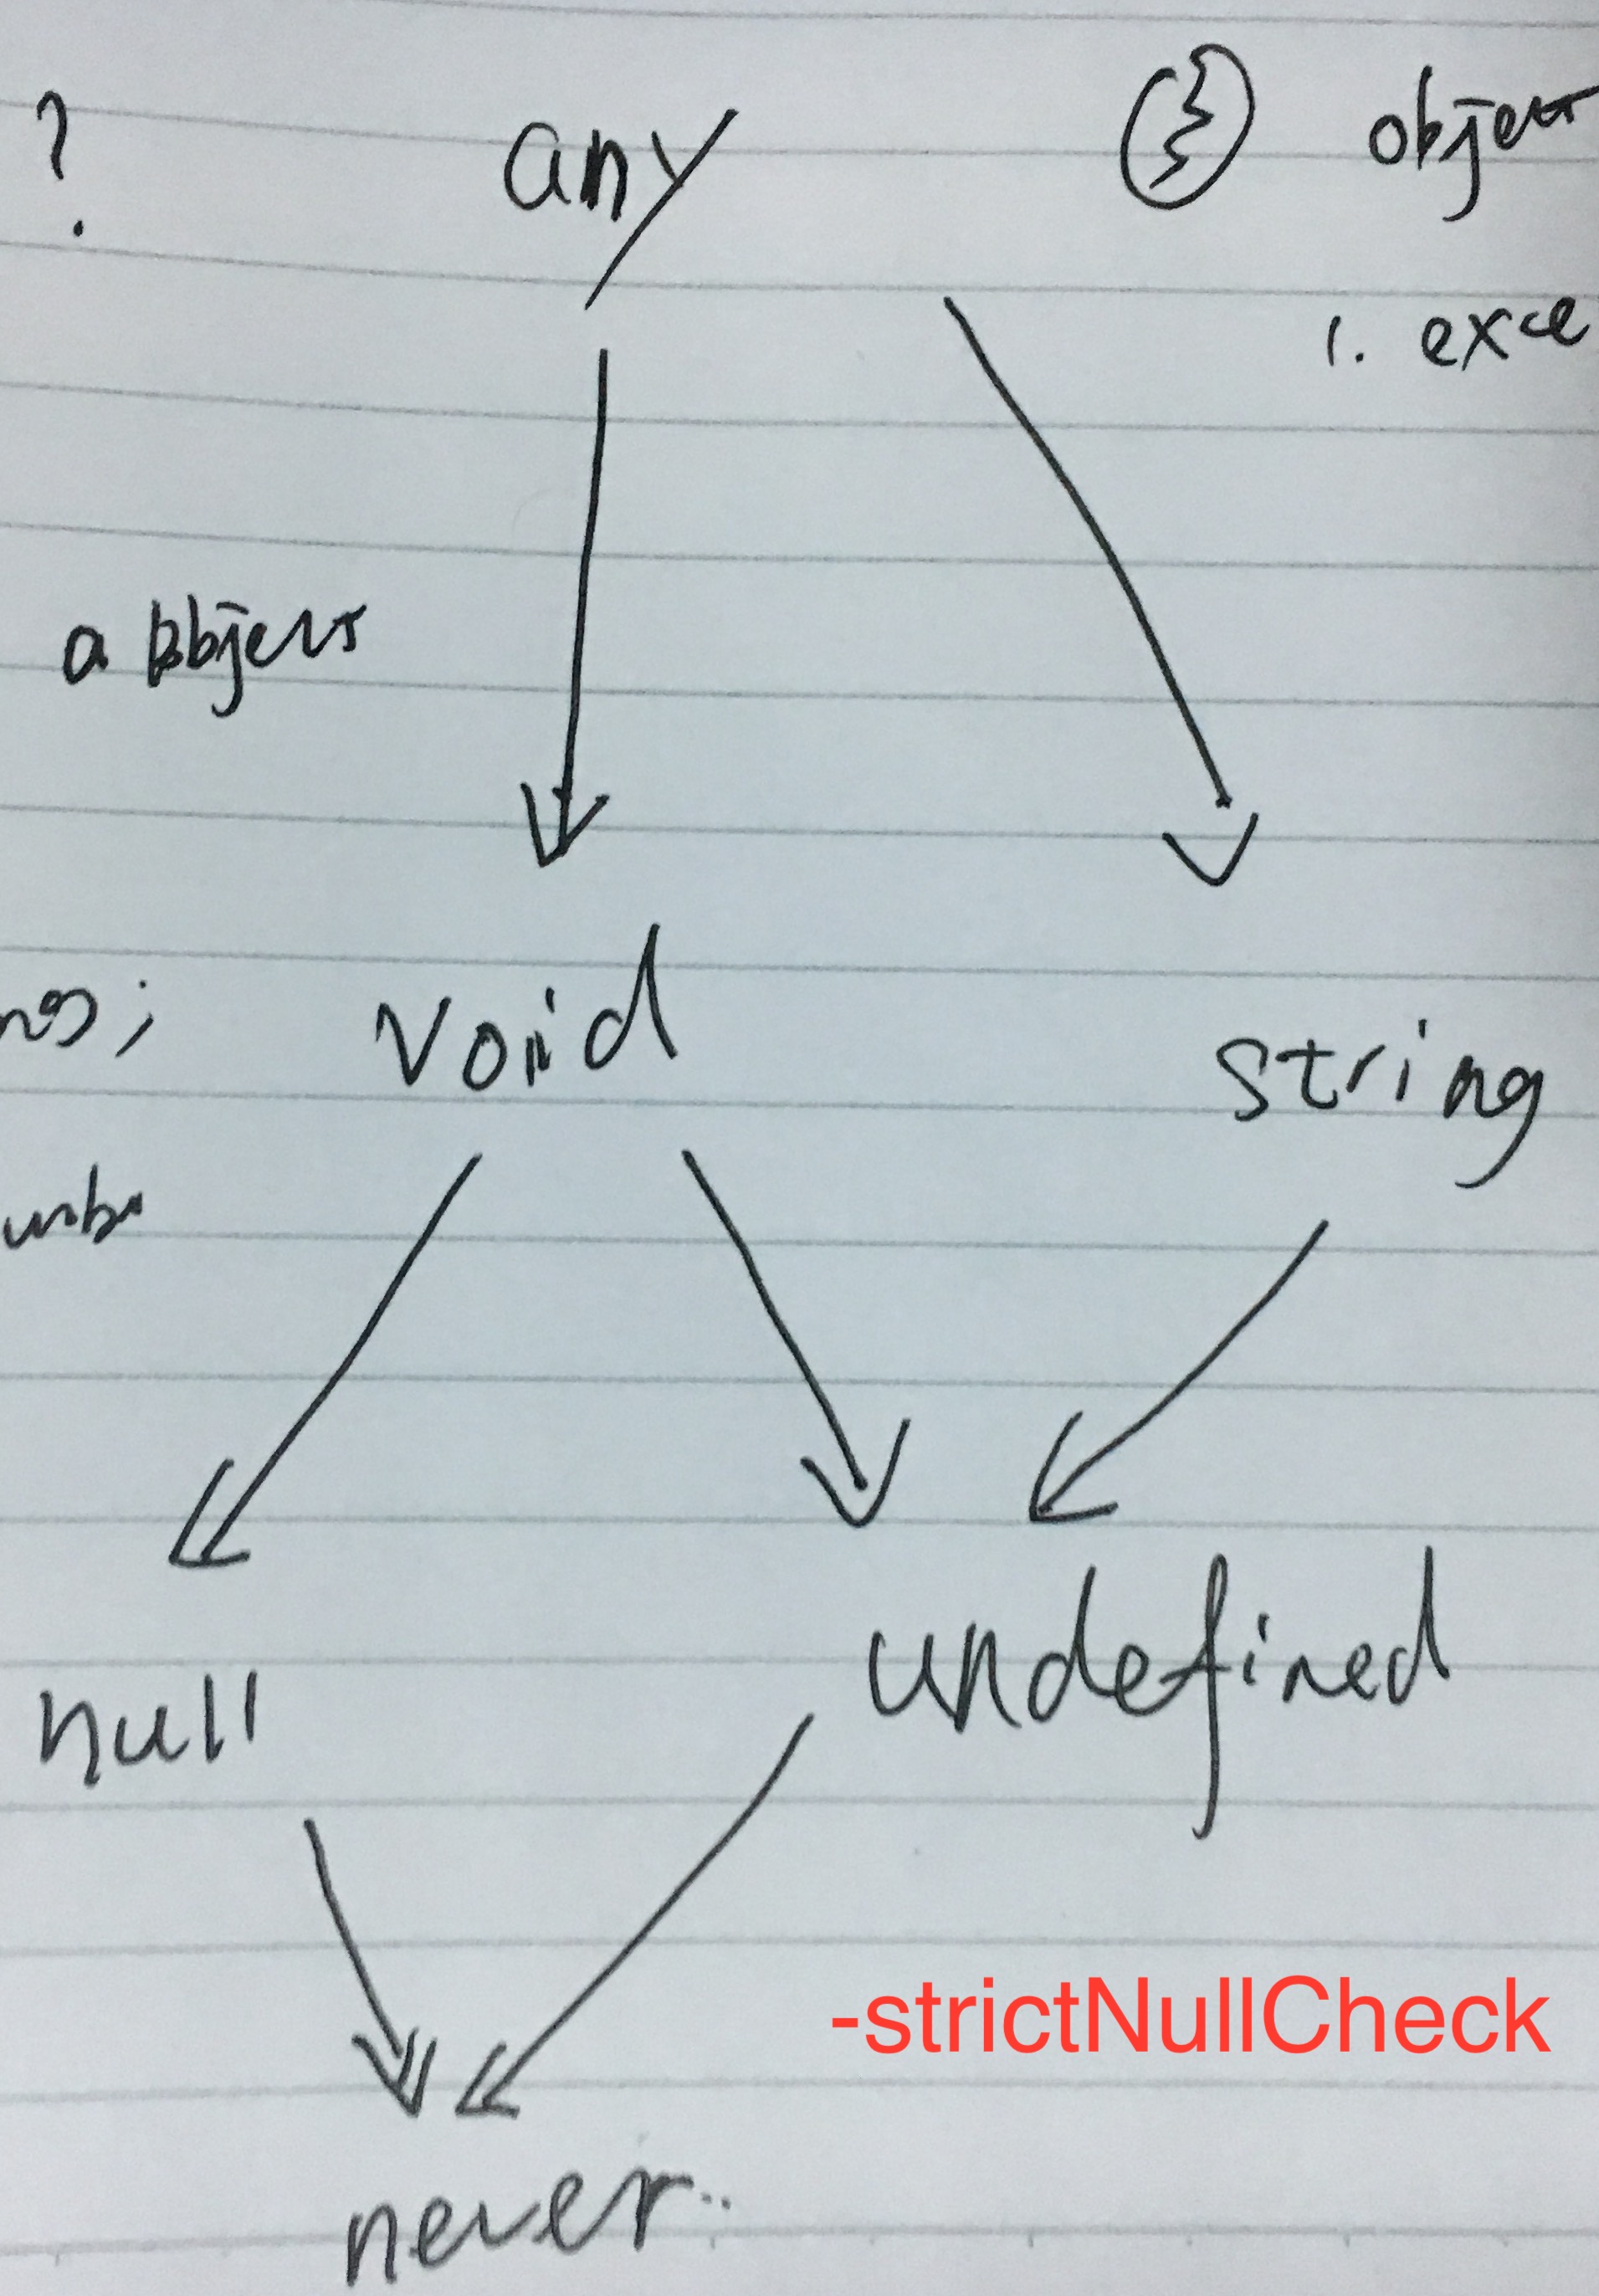 ?
any
③ object
1. exce
a object
void
string
null
undefined
-strictNullCheck
never..